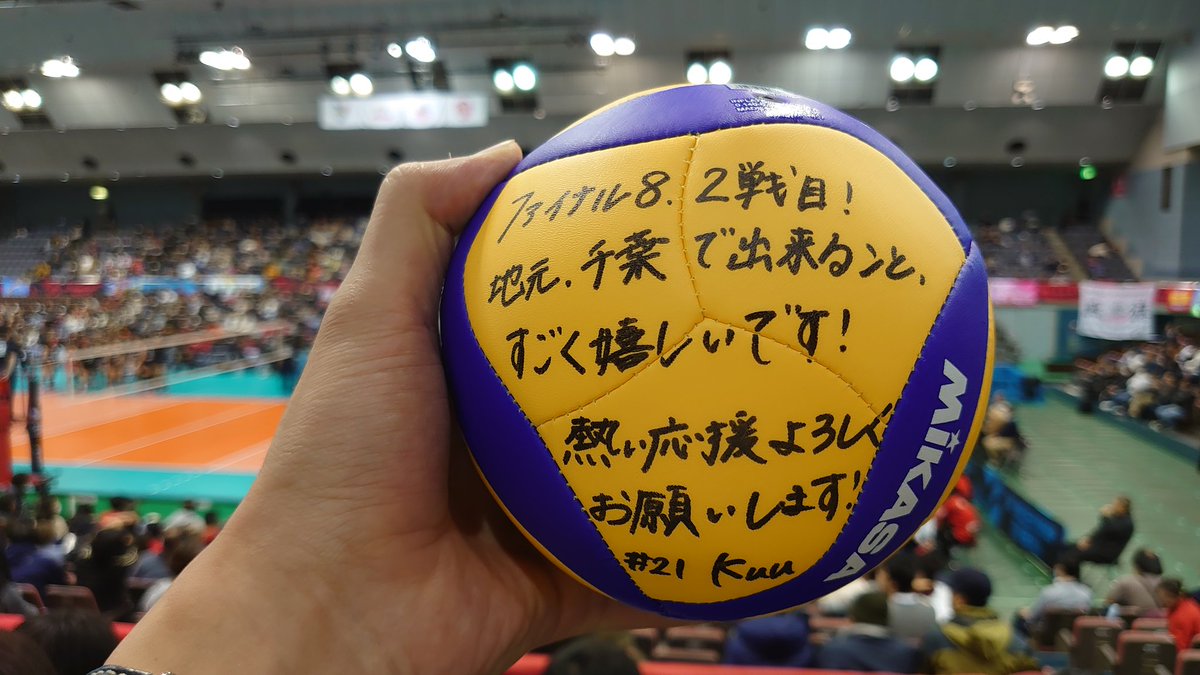 ファイナル8. 2戦目!
地元、千葉で出来ること、
すごく嬉しいです!
熱い応援よろしく
お願いします!
#21 Kuu
MIKASA